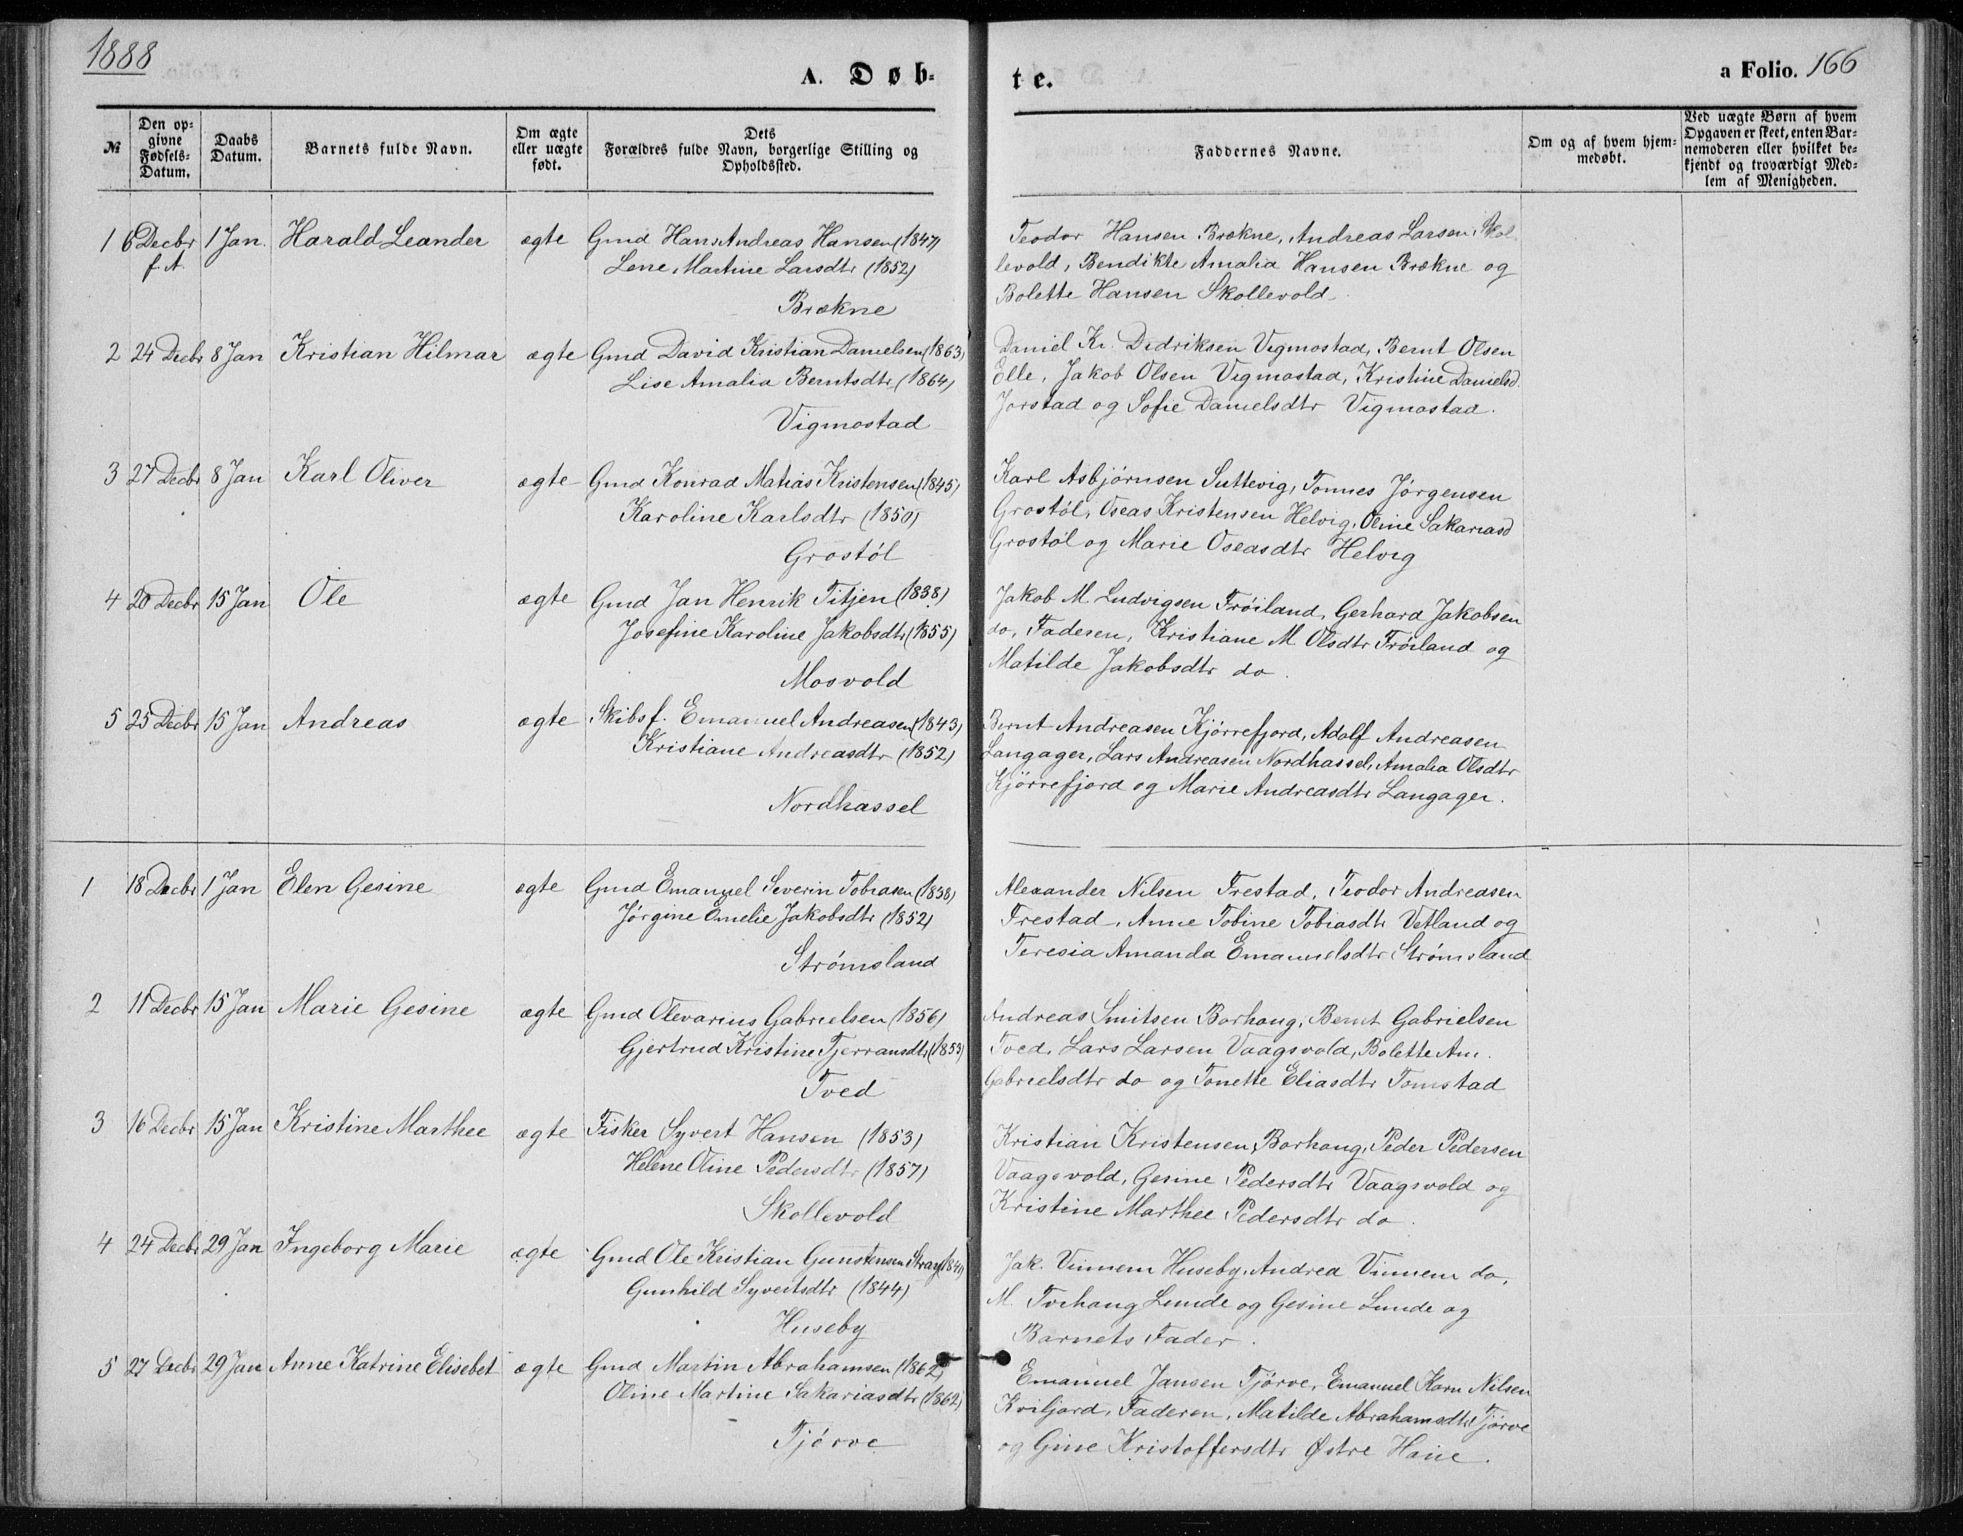 1888
A. Døb-
te.
a Folio. 166
№
Den op-
givne
Fødsels-
Datum.
Daabs
Datum.
Barnets fulde Navn.
Om ægte
eller uægte
født.
Dets
Forældres fulde Navn, borgerlige Stilling og
Opholdssted.
Faddernes Navne.
Om og af hvem hjem-
medøbt.
Ved uægte Børn af hvem
Opgaven er skeet, enten Bar-
nemoderen eller hvilket be-
kjendt og troværdigt Med-
lem af Menigheden.
1 6 Decbr 1 Jan. Harald Leander ægte Gmd Hans Andreas Hansen (1847)
f. A. Lene Martine Larsdtr (1852)
Brækne
Teodor Hansen Brækne, Andreas Larsen Skol-
levold, Bendikte Amalia Hansen Brækne og
Bolette Hansen Skollevold
2 24 Decbr 8 Jan Kristian Hilmar ægte Gmd David Kristian Danielsen (1863)
Lise Amalia Berntsdtr (1864)
Vigmostad
Daniel Kr. Didriksen Vigmostad, Bernt Olsen
Elle, Jakob Olsen Vigmostad, Kristine Danielsd
Jorstad og Sofie Danielsdtr Vigmostad.
3 27 Decbr 8 Jan Karl Oliver ægte Gmd Konrad Matias Kristensen (1845)
Karoline Karlsdtr (1850)
Grostøl
Karl Asbjørnsen Suttevig, Tonnes Jørgensen
Grostøl, Oseas Kristensen Helvig, Oline Sakariasd
Grostøl og Marie Oseasdtr Helvig
4 20 Decbr 15 Jan Ole ægte Gmd Jan Henrik Titjen (1838)
Josefine Karoline Jakobsdtr (1855)
Mosvold
Jakob M. Ludvigsen Frøiland, Gerhard Jakobsen
do, Faderen, Kristiane M Olsdtr Frøiland og
Matilde Jakobsdtr do.
5 25 Decbr 15 Jan Andreas ægte Skibsf. Emanuel Andreasen (1843)
Kristiane Andreasdtr (1852)
Nordhassel
Bernt Andreasen Kjørrefjord, Adolf Andreasen
Langager, Lars Andreasen Nordhassel, Amalia Olsdtr
Kjørrefjord og Marie Andreasdtr Langager.
1 18 Decbr 1 Jan Elen Gesine ægte Gmd Emanuel Severin Tobiasen (1838)
Jørgine Omelie Jakobsdtr (1852)
Strømsland
Alexander Nilsen Frestad, Teodor Andreasen
Frestad, Anne Tobine Tobiasdtr Vetland og
Teresia Amanda Emanuelsdtr Strømsland
2 11 Decbr 15 Jan Marie Gesine ægte Gmd Olevarius Gabrielsen (1856)
Gjertrud Kristine Tjerransdtr (1853)
Tved
Andreas Smitsen Borhaug, Bernt Gabrielsen
Tved, Lars Larsen Vaagsvold, Bolette Am.
Gabrielsdtr do og Tonette Eliasdtr Tomstad
3 16 Decbr 15 Jan Kristine Marthee ægte Fisker Syvert Hansen (1853)
Helene Oline Pedersdtr (1857)
Skollevold
Kristian Kristensen Borhaug, Peder Pedersen
Vaagsvold, Gesine Pedersdtr Vaagsvold og
Kristine Marthee Pedersdtr do.
4 24 Decbr 29 Jan Ingeborg Marie ægte Gmd Ole Kristian Gunstensen Stray
Gunhild Syvertsdtr (1844)
Huseby
Jak. Vinnem Huseby, Andrea Vinnem do,
M. Torhaug Lunde og Gesine Lunde og
Barnets Fader.
5 27 Decbr 29 Jan Anne Katrine Elisebet ægte Gmd Martin Abrahamsen (1862)
Oline Martine Sakariasdtr (1862)
Tjørve
Emanuel Jansen Tjørve, Emanuel Korn. Nilsen
Kviljord, Faderen, Matilde Abrahamsdtr Tjørve
og Gine Kristoffersdtr Østre Haue.